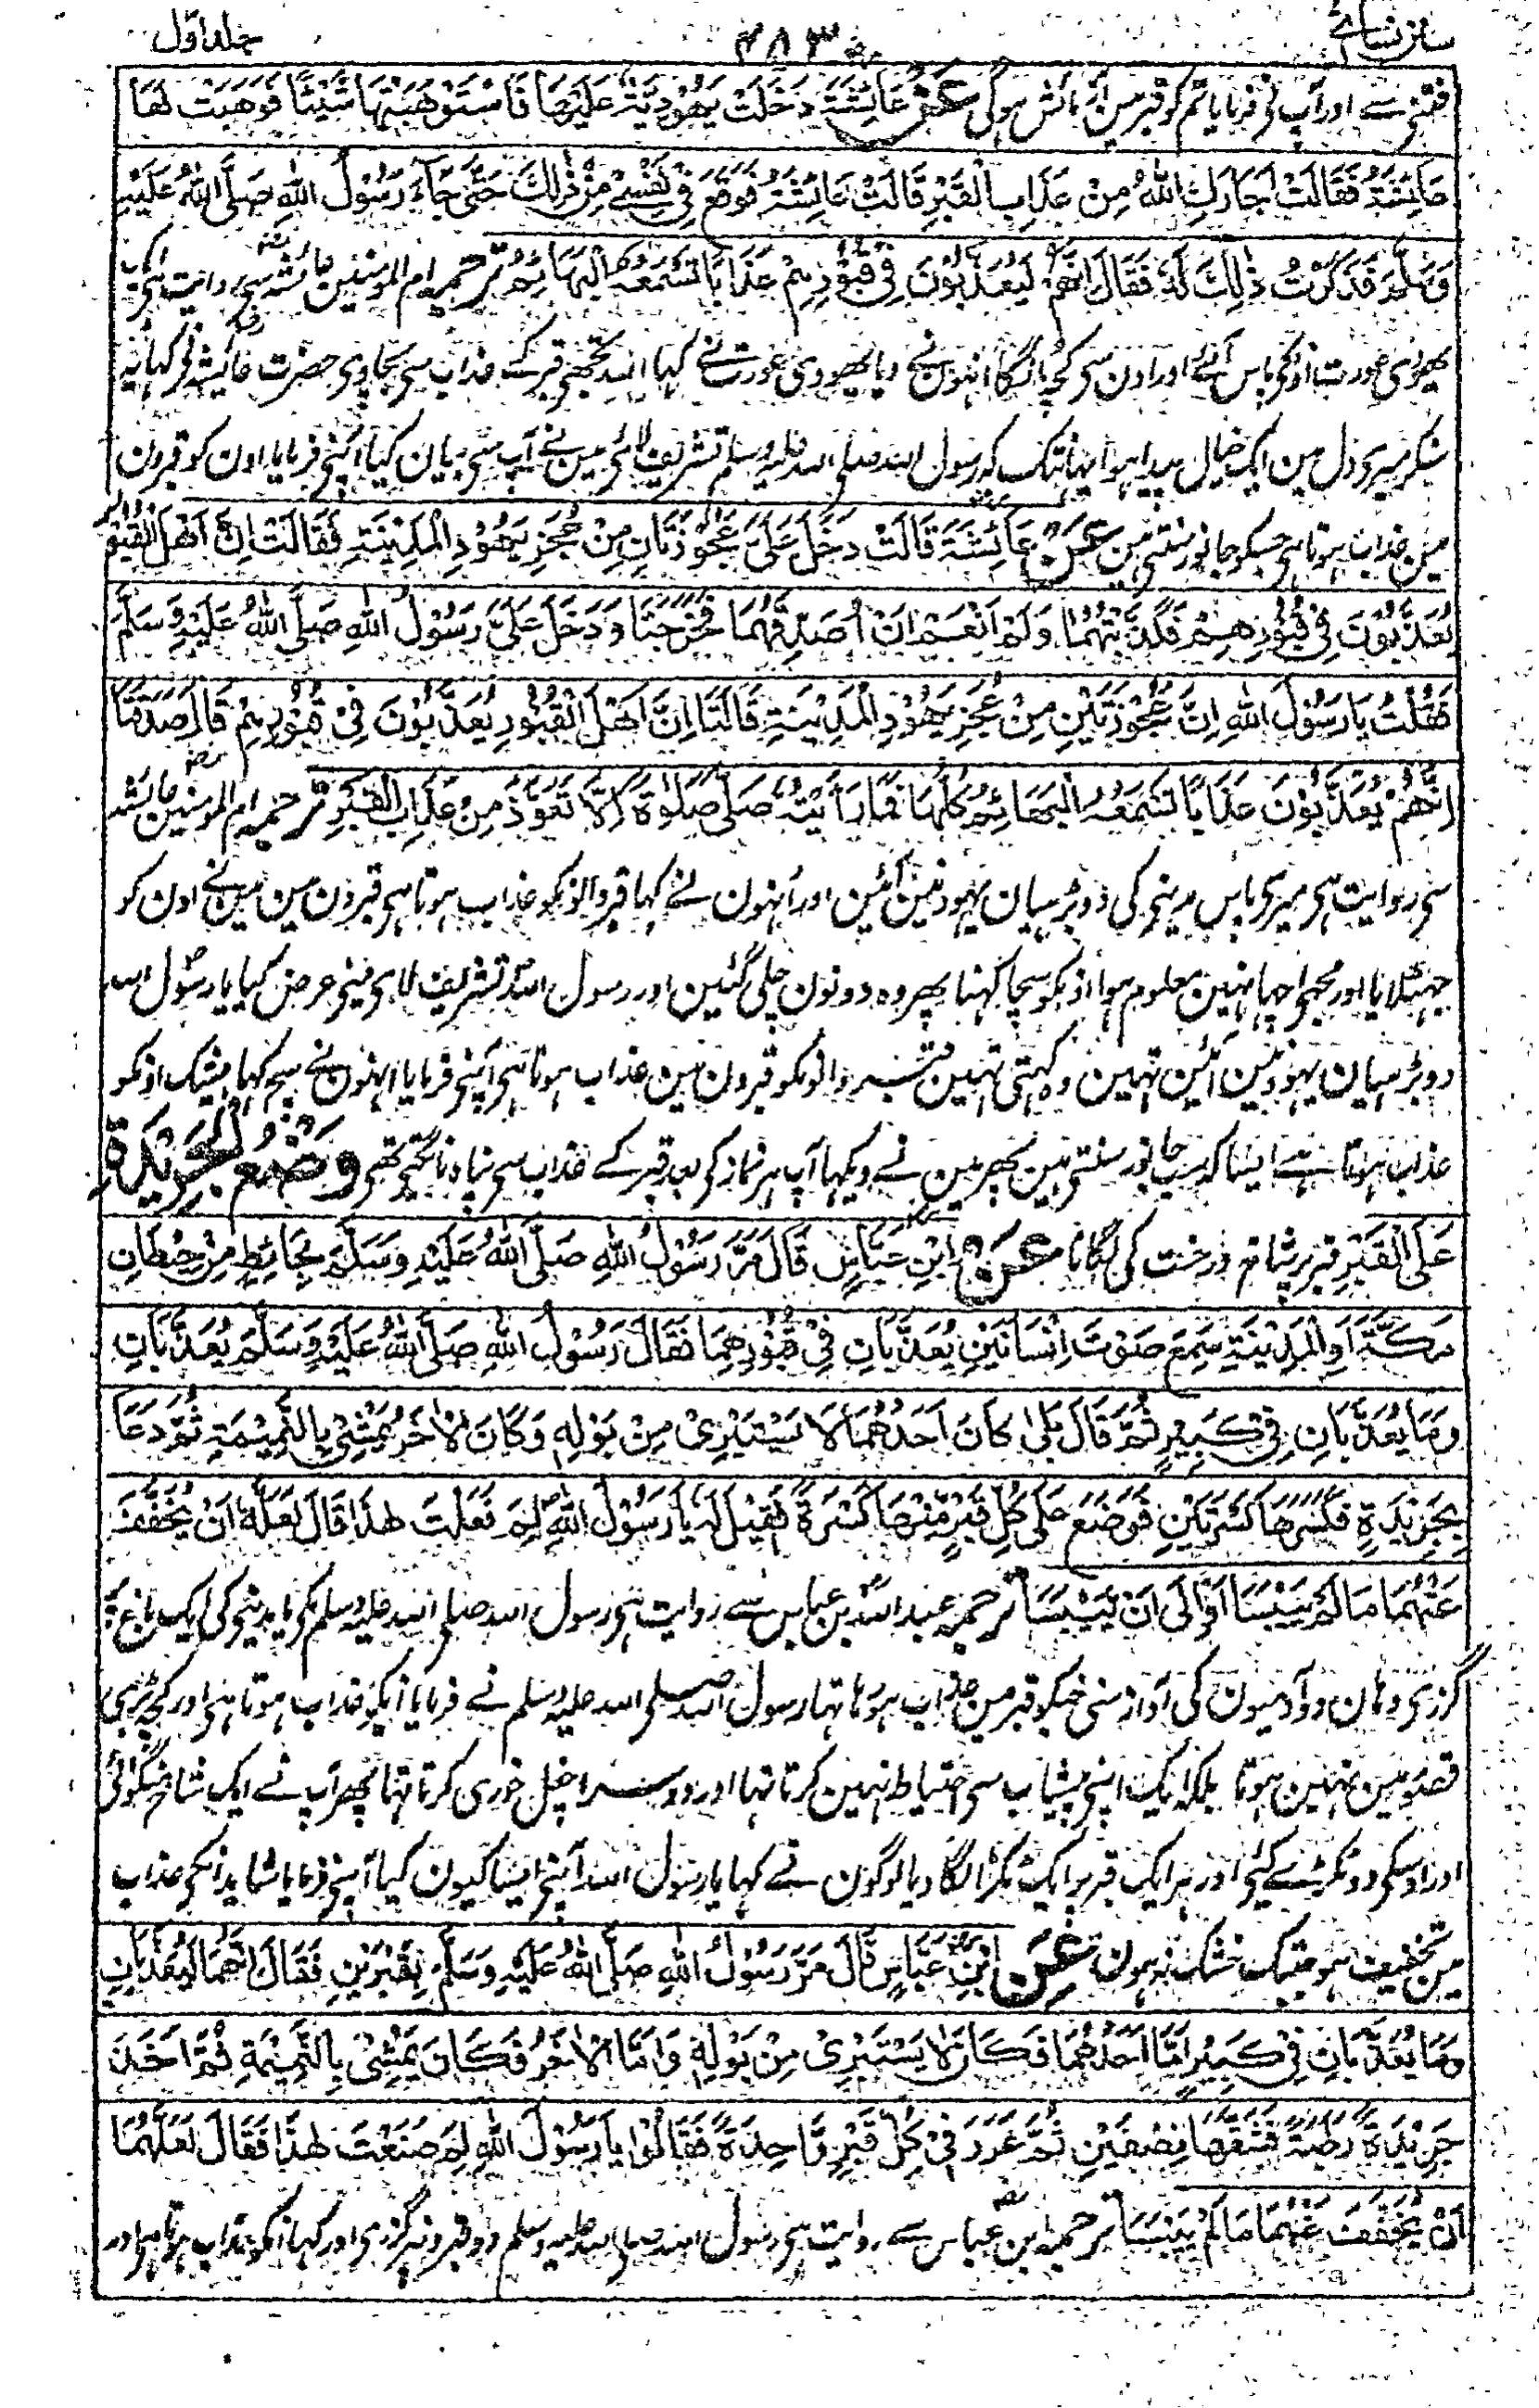 سنن نسائی ۲۸۳ جلد اول
فتنے سے اور آپ نے فرمایا تم کو قبر مین آزمائش ہوگی عَنْ عَائِشَةَ دَخَلَتْ يَهُوْدِيَّةٌ عَلَيْهَا فَاسْتَوْهَبَتْهَا شَيْئًا فَوَهَبَتْ لَهَا
عَائِشَةُ فَقَالَتْ اَجَارَكِ اللهُ مِنْ عَذَابِ الْقَبْرِ قَالَتْ عَائِشَةُ فَوَقَعَ فِيْ نَفْسِيْ مِنْ ذٰلِكَ حَتّٰى جَآءَ رَسُوْلُ اللهِ صَلَّى اللهُ عَلَيْهِ
وَسَلَّمَ فَذَكَرْتُ ذٰلِكَ لَهُ فَقَالَ اِنَّهُمْ لَيُعَذَّبُوْنَ فِيْ قُبُوْرِهِمْ عَذَابًا تَسْمَعُهُ الْبَهَائِمُ ترجمہ ام المومنین عائشہ سے روایت ہی ایک
یہودی عورت اونکی پاس آئے اور اون سی کچہ مانگا انہوں نے دیا یہودی عورت نے کہا اللہ تجھی قبر کے عذاب سی بچاوی حضرت عائشہ نے کہا یہ
سنکر میری دل مین ایک خیال پیدا ہوا یہانتک کہ رسول اللہ صلی اللہ علیہ وسلم تشریف لائی مین نے آپ سی بیان کیا آپنی فرمایا اون کو قبرون
مین عذاب ہوتا ہی جسکو جانور سنتی ہین عَنْ عَائِشَةَ قَالَتْ دَخَلَ عَلَيَّ عَجُوْزَتَانِ مِنْ عُجُزِ يَهُوْدِ الْمَدِيْنَةِ فَقَالَتْ اِنَّ اَهْلَ الْقُبُوْرِ
يُعَذَّبُوْنَ فِيْ قُبُوْرِهِمْ فَكَذَّبْتُهُمَا وَلَمْ اَنْعَمْ اَنْ اُصَدِّقَهُمَا فَخَرَجَتَا وَدَخَلَ عَلَيَّ رَسُوْلُ اللهِ صَلَّى اللهُ عَلَيْهِ وَسَلَّمَ
فَقُلْتُ يَا رَسُوْلَ اللهِ اِنَّ عَجُوْزَتَيْنِ مِنْ عُجُزِ يَهُوْدِ الْمَدِيْنَةِ قَالَتَا اِنَّ اَهْلَ الْقُبُوْرِ يُعَذَّبُوْنَ فِيْ قُبُوْرِهِمْ قَالَ صَدَقَتَا
اِنَّهُمْ يُعَذَّبُوْنَ عَذَابًا تَسْمَعُهُ الْبَهَائِمُ كُلُّهَا فَمَا رَاَيْتُهُ صَلّٰى صَلٰوةً اِلَّا تَعَوَّذَ مِنْ عَذَابِ الْقَبْرِ ترجمہ ام المومنین عائشہ
سی روایت ہی میری پاس مدینی کی دو بڑہیان یہودنین آئین اور اُنہون نے کہا قبر والونکو عذاب ہوتا ہی قبرون مین مین نے اون کو
جہٹلایا اور مجھی اچہا نہین معلوم ہوا اونکو سچا کہنا پھر وہ دونون چلی گئین اور رسول اللہ تشریف لائی مینی عرض کیا یا رسول اللہ
دو بڑہیان یہودنین آئین تہین وہ کہتی تہین قبر والونکو قبرون مین عذاب ہوتا ہی آپنی فرمایا انہون نے سچ کہا بیشک اونکو
عذاب ہوتا ہے ایسا کہ سب جانور سنتی ہین پھر مین نے دیکہا آپ ہر نماز کی بعد قبر کے عذاب سی پناہ مانگتی تھی وَضْعُ الْجَرِيْدَةِ
عَلَى الْقَبْرِ قبر پر شاخ درخت کی لگانا عَنْ ابْنِ عَبَّاسٍ قَالَ مَرَّ رَسُوْلُ اللهِ صَلَّى اللهُ عَلَيْهِ وَسَلَّمَ بِحَائِطٍ مِنْ حِيْطَانِ
مَكَّةَ اَوِ الْمَدِيْنَةِ سَمِعَ صَوْتَ اِنْسَانَيْنِ يُعَذَّبَانِ فِيْ قُبُوْرِهِمَا فَقَالَ رَسُوْلُ اللهِ صَلَّى اللهُ عَلَيْهِ وَسَلَّمَ يُعَذَّبَانِ
وَمَا يُعَذَّبَانِ فِيْ كَبِيْرٍ ثُمَّ قَالَ بَلٰى كَانَ اَحَدُهُمَا لَا يَسْتَبْرِئُ مِنْ بَوْلِهِ وَكَانَ الْاٰخَرُ يَمْشِيْ بِالنَّمِيْمَةِ ثُمَّ دَعَا
بِجَرِيْدَةٍ فَكَسَرَهَا كَسْرَتَيْنِ فَوَضَعَ عَلٰى كُلِّ قَبْرٍ مِنْهُمَا كَسْرَةً فَقِيْلَ لَهُ يَا رَسُوْلَ اللهِ لِمَ فَعَلْتَ هٰذَا قَالَ لَعَلَّهُ اَنْ يُخَفَّفَ
عَنْهُمَا مَا لَمْ يَيْبَسَا اَوْ اِلٰى اَنْ يَيْبَسَا ترجمہ عبد اللہ بن عباس سے روایت ہی رسول اللہ صلی اللہ علیہ وسلم مکی یا مدینی کی ایک باغ پر
گزری وہان دو آدمیون کی آواز سنی جنکو قبر مین عذاب ہو رہا تہا رسول اللہ صلی اللہ علیہ وسلم نے فرمایا انکو عذاب ہوتا ہی اور کچھ بڑی
قصور مین نہین ہوتا بلکہ ایک اپنی پیشاب سی احتیاط نہین کرتا تہا اور دوسرا چغل خوری کرتا تہا پھر آپ نے ایک شاخ منگوائی
اور اوسکی دو ٹکڑے کئی اور ہر ایک قبر پر ایک ٹکڑا لگا دیا لوگون نے کہا یا رسول اللہ آپنی ایسا کیون کیا آپنی فرمایا شاید انکی عذاب
مین تخفیف ہو جبتک خشک نہ ہون عَنِ ابْنِ عَبَّاسٍ قَالَ مَرَّ رَسُوْلُ اللهِ صَلَّى اللهُ عَلَيْهِ وَسَلَّمَ بِقَبْرَيْنِ فَقَالَ اِنَّهُمَا لَيُعَذَّبَانِ
وَمَا يُعَذَّبَانِ فِيْ كَبِيْرٍ اَمَّا اَحَدُهُمَا فَكَانَ لَا يَسْتَبْرِئُ مِنْ بَوْلِهِ وَاَمَّا الْاٰخَرُ فَكَانَ يَمْشِيْ بِالنَّمِيْمَةِ ثُمَّ اَخَذَ
جَرِيْدَةً رَطْبَةً فَشَقَّهَا نِصْفَيْنِ ثُمَّ غَرَزَ فِيْ كُلِّ قَبْرٍ وَاحِدَةً فَقَالُوْا يَا رَسُوْلَ اللهِ لِمَ صَنَعْتَ هٰذَا فَقَالَ لَعَلَّهُمَا
اَنْ يُخَفَّفَ عَنْهُمَا مَا لَمْ يَيْبَسَا ترجمہ ابن عباس سے روایت ہی رسول اللہ صلی اللہ علیہ وسلم دو قبرونپر گزری اور کہا انکو عذاب ہوتا ہی اور